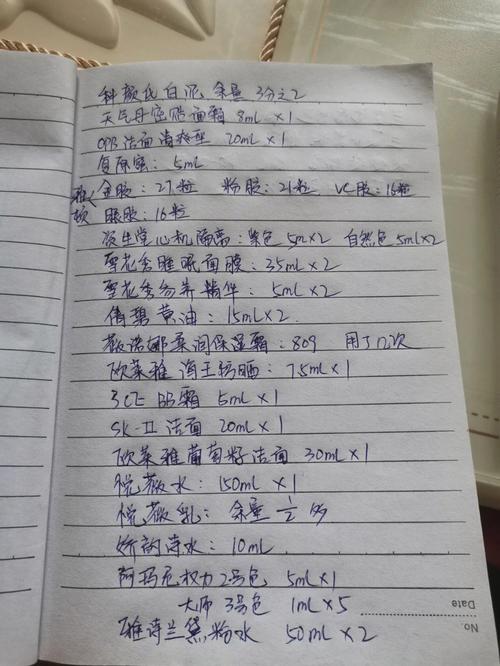 科颜氏白泥 余量 3分之2
天气丹宠臨面霜 8ml ×1
OPB洁面清爽型 20ml ×1
复原蜜: 5ml
雅顿 金胶: 27粒 粉胶: 21粒 VC胶: 16粒
眼胶: 16粒
资生堂心机隔离: 紫色 5ml×2 自然色 5ml×2
雪花秀睡眠面膜: 35ml×2
雪花秀滋养精华: 5ml×2
倩碧黄油: 15ml×2
薇诺娜柔润保湿霜: 80g 用了几次
欧莱雅 海王防晒: 7.5ml×1
3CE BB霜 5ml×1
SK-II 洁面 20ml×1
欧莱雅葡萄籽洁面 30ml×1
悦薇水: 150ml×1
悦薇乳: 余量 1/2 多
娇韵诗水: 10ml
阿玛尼权力2号色, 5ml×1
大师 3号色 1ml×5
雅诗兰黛粉水 50ml×2
Date
No.